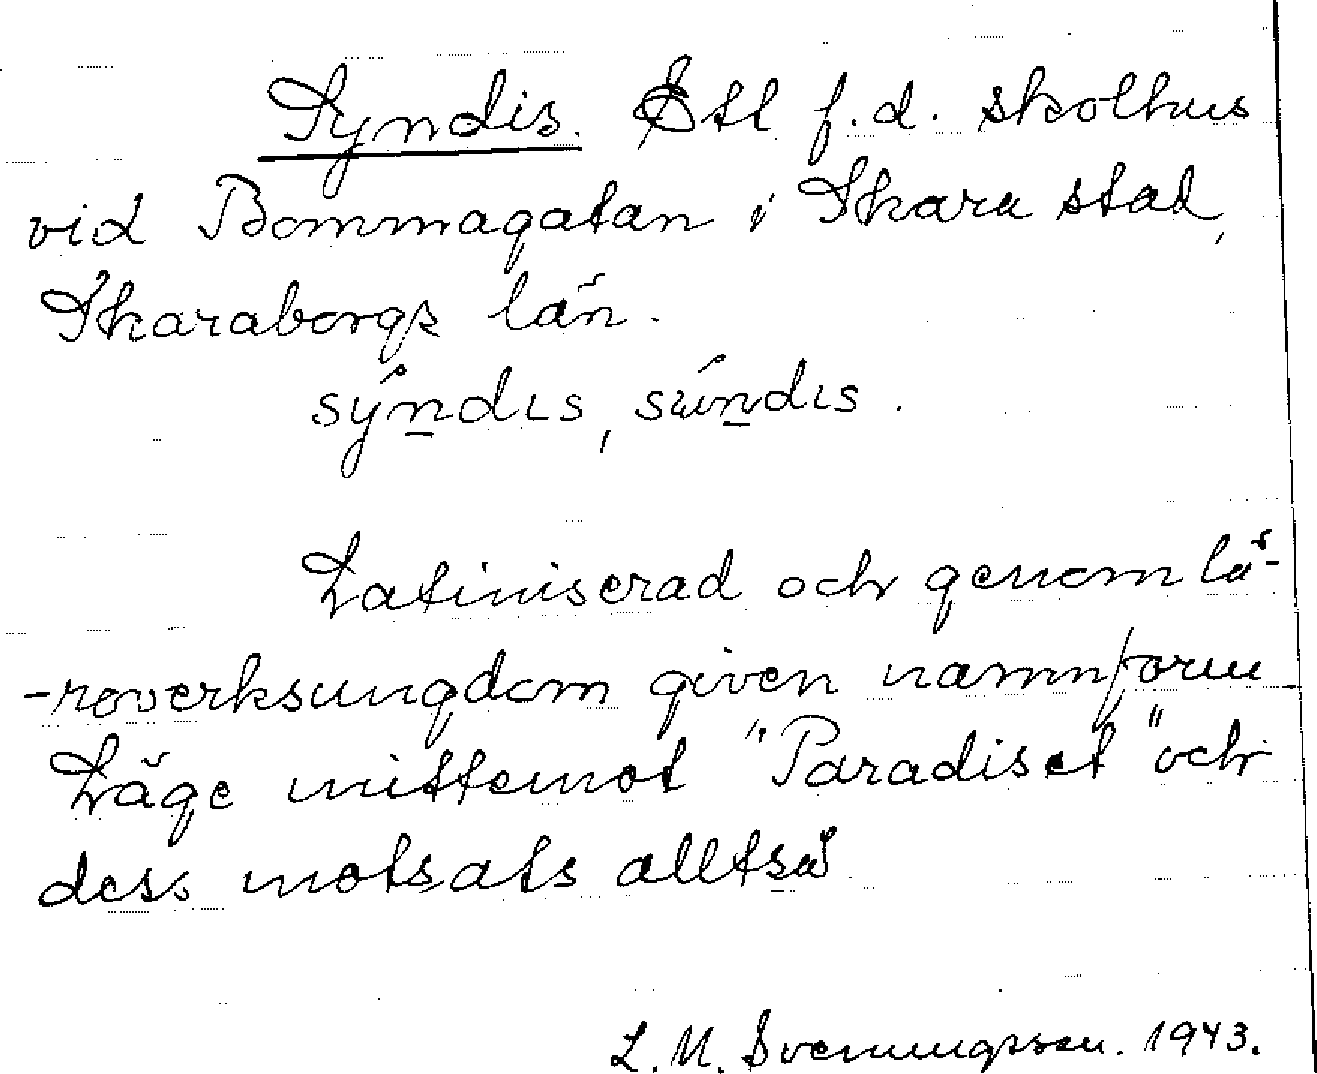 Syndis. Ett f.d. skolhus
vid Bommagatan i Skara stad,
Skaraborgs län.
sýndıs, súndıs.
Latiniserad och genom lä-
-roverksungdom given namnform
Läge mittemot "Paradiset" och
dess motsats alltså
L. M. Svenungsson. 1943.